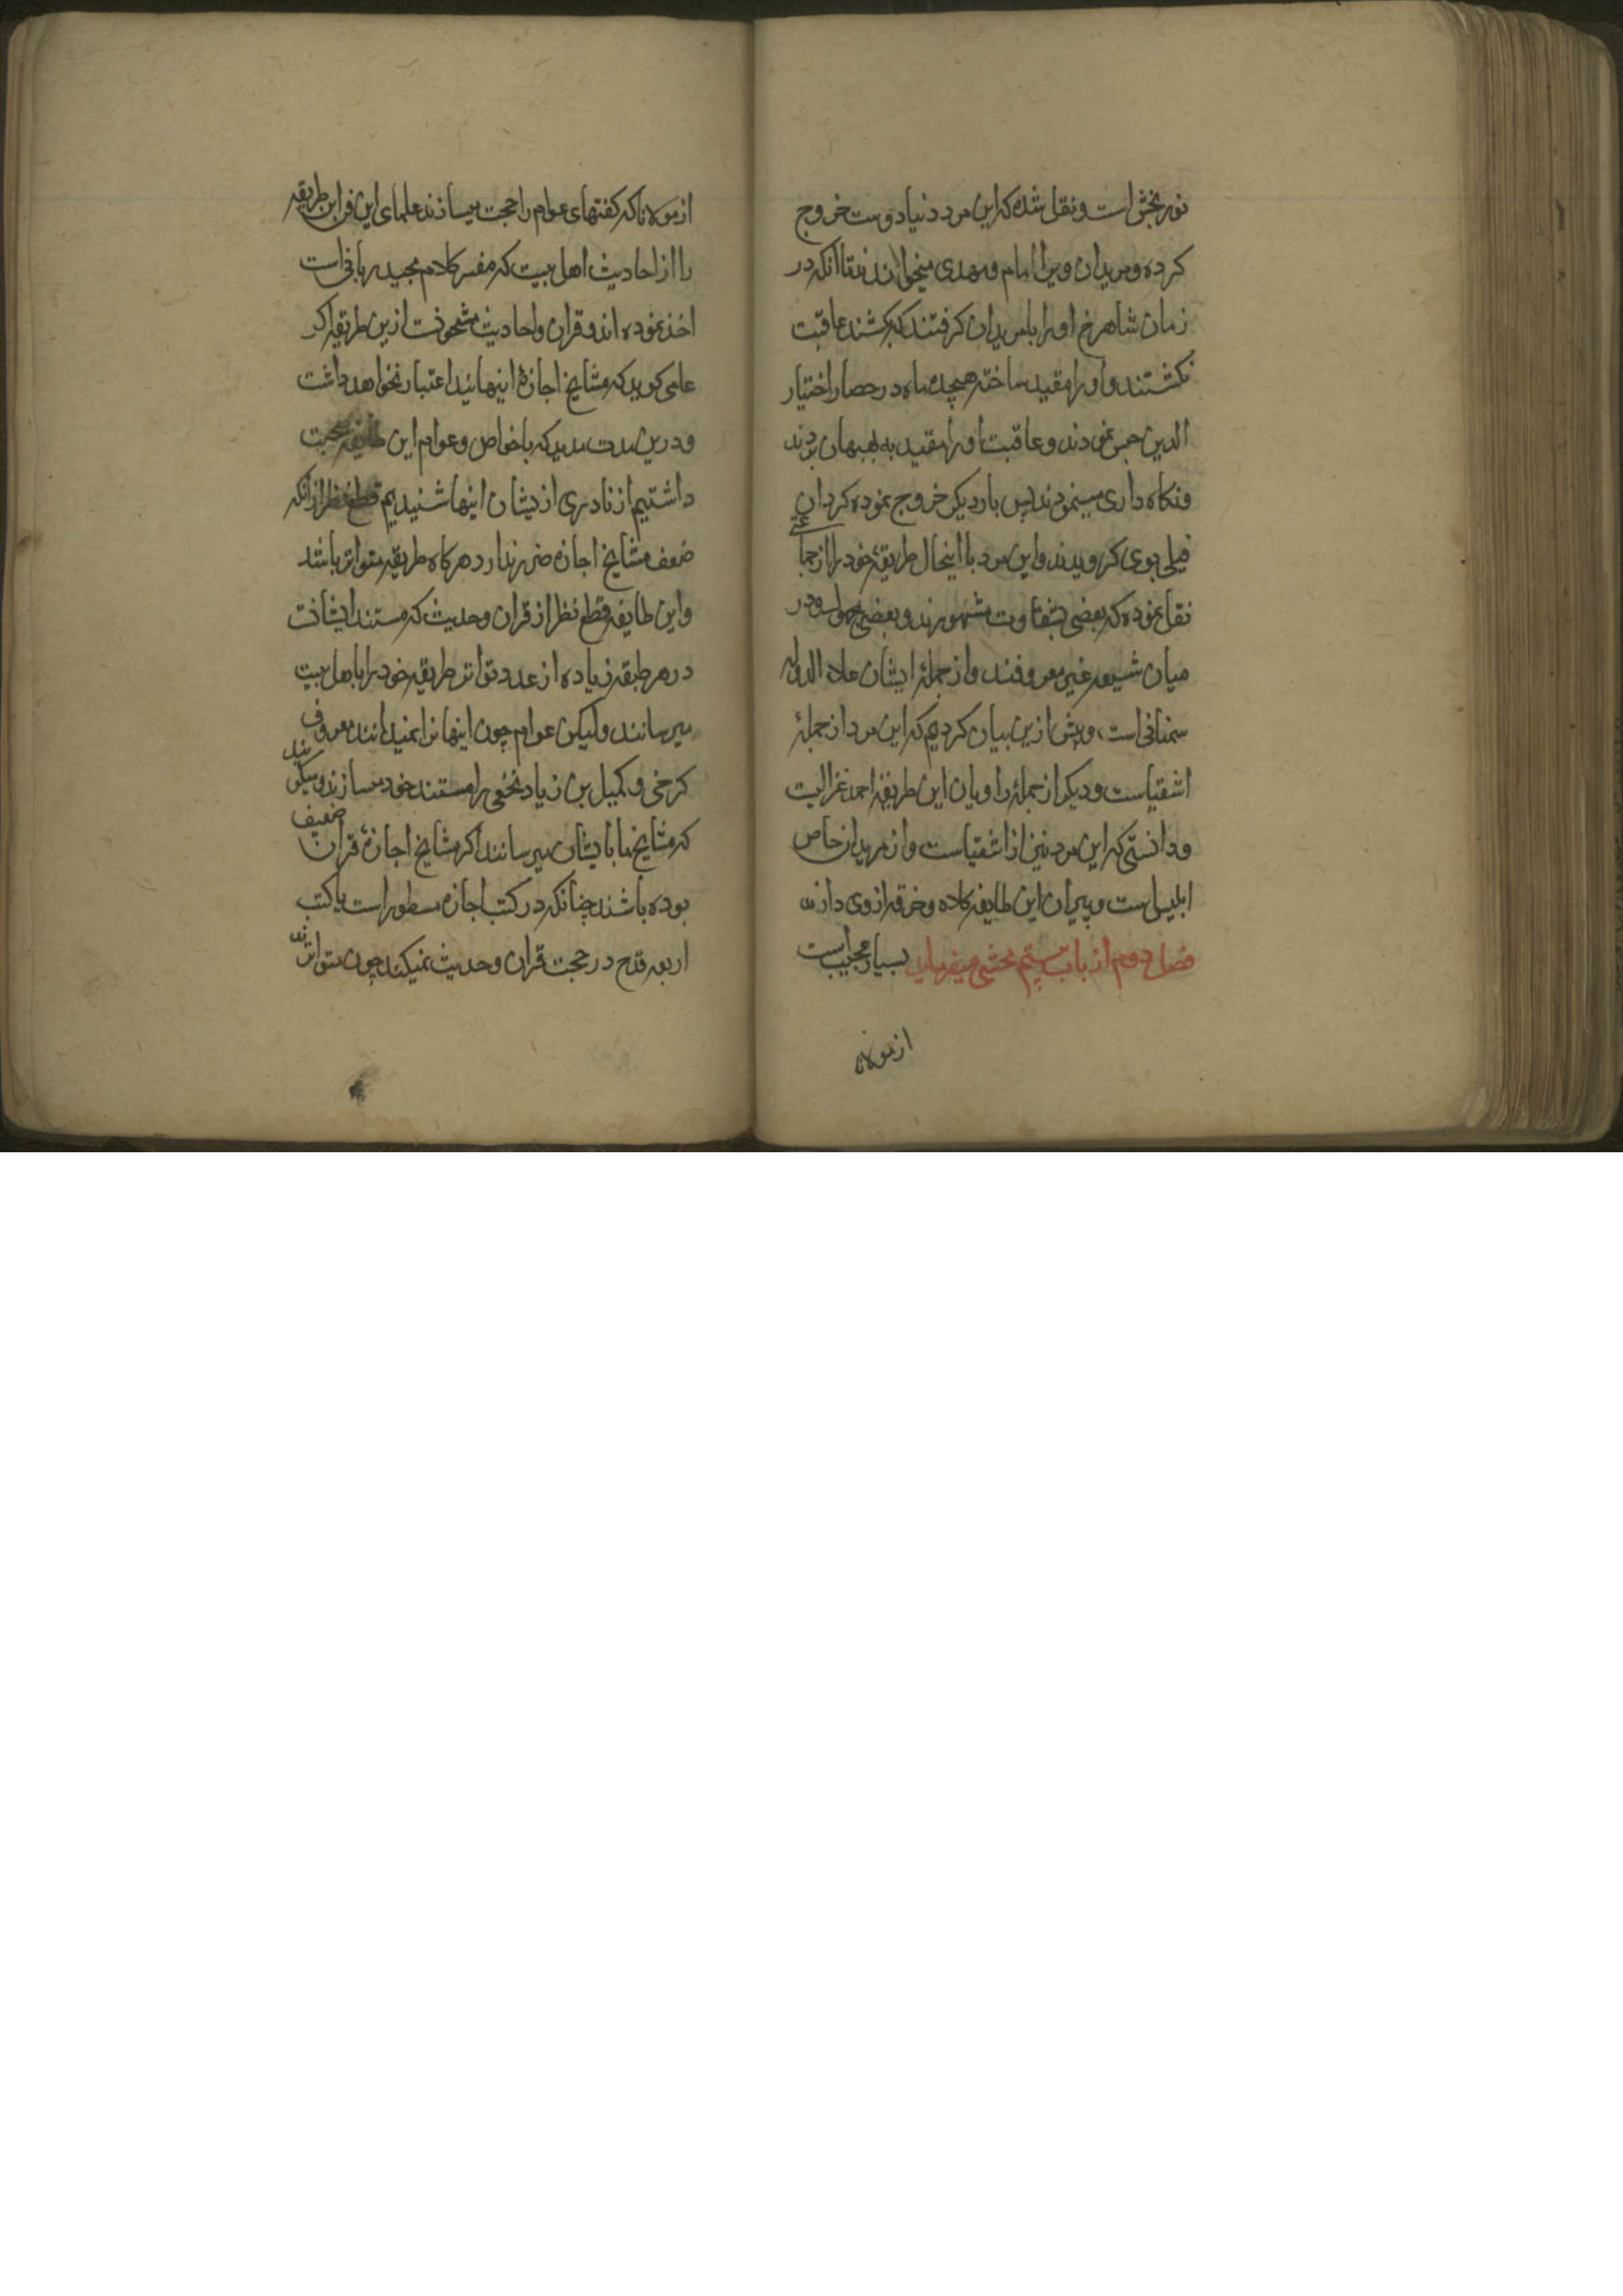 نوربخش است و نقل شده که این مرد دنیا دوست خروج
کرده و مریدان ویرا امام و مهدی میخواندند تا انکه در
زمان شاهرخ او را با مریدان کرفتند که بکشند عاقبت
نکشتند و او را مقید ساخته هیجده ماه در حصار اختیار
الدین حبس نمودند و عاقبت او را مقید به بهبهان بردند
و نکاه داری مینمودند پس بار دیکر خروج نموده کردان
فیلی بوی کرویدند و این مرد با اینحال طریقهٔ خود را از جماعتی
نقل نموده که بعضی بشقاوت مشهورند و بعضی مجهول و در
میان شیعه غیر معروفند و از جملهٔ ایشان علاء الدوله
سمنانی است، و پیش ازین بیان کردیم که این مرد از جملهٔ
اشقیاست و دیکر از جملهٔ راویان این طریقه احمد غزالیت
و دانستی که این مرد نیز از اشقیاست و از مریدان خاص
ابلیس است و پیران این طایفه کلاه و خرقه از وی دارند
فصل دوم از باب بیستم محشی میفرماید بسیار عجیب است
از مولانا
از مولانا که کفتهای عوام را حجت میسازند علمای این فن این طریقه
را از احادیث اهل بیت که مفسر کلام مجید ربانی است
اخذ نموده اند و قران و احادیث مشحونست ازین طریقه اکر
عامی کوید که مشایخ اجازهٔ اینهایند اعتبار نخواهد داشت
و درین مدت مدید که با خواص و عوام این طایفه صحبت
داشتیم از نادری ازیشان اینها شنیدیم قطع نظر از انکه
ضعف مشایخ اجازه ضرر ندارد هرکاه طریقه متواتر باشد
و این طایفه قطع نظر از قران و حدیث که مستند ایشانست
در هر طبقه زیاده از عدد تواتر طریقهٔ خود را باهل بیت
میرسانند و لیکن عوام چون اینها را نمیدانند معروف
کرخی و کمیل بن زیاد نخعی را مستند خود میسازند و میکویند
که مشایخ ما بایشان میرسانند اکر مشایخ اجازهٔ قران ضعیف
بوده باشند چنانکه در کتب اجازه مسطور است یا کتب
اربعه قدح در حجت قران و حدیث نمیکند چون متواترند